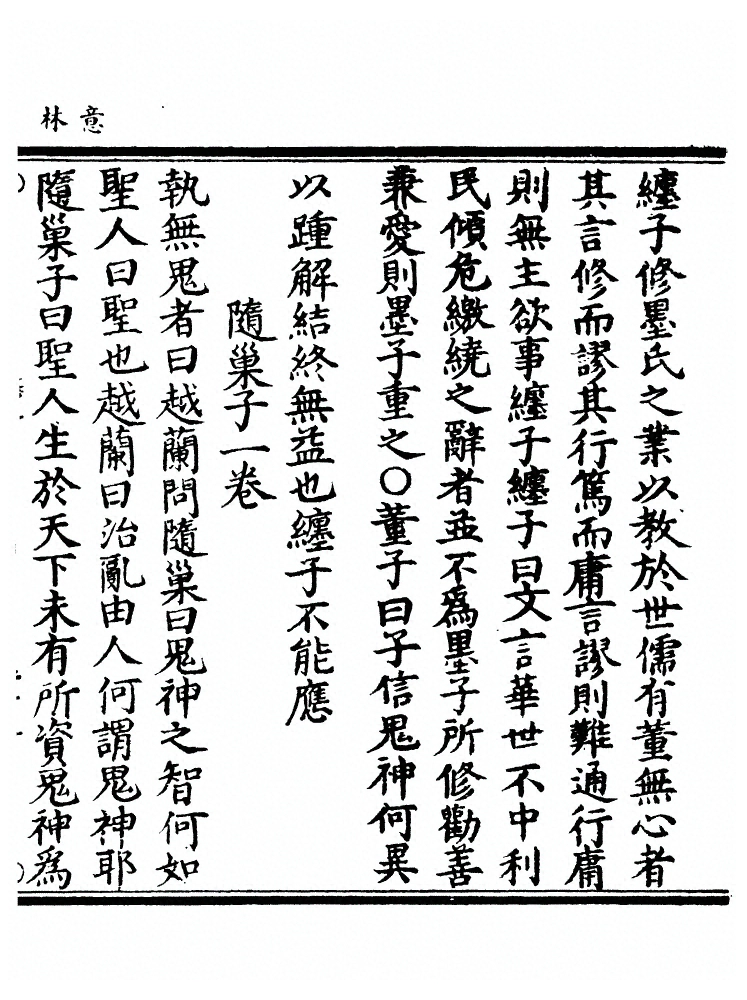 意林
纏子修墨氏之業以教於世儒有董無心者
其言修而謬其行篤而庸言謬則難通行庸
則無主欲事纏子纏子曰文言華世不中利
民傾危繳繞之辭者並不為墨子所修勸善
兼愛則墨子重之○董子曰子信鬼神何異
以踵解結終無益也纏子不能應
隨巢子一卷
執無鬼者曰越蘭問隨巢曰鬼神之智何如
聖人曰聖也越蘭曰治亂由人何謂鬼神耶
隨巢子曰聖人生於天下未有所資鬼神為